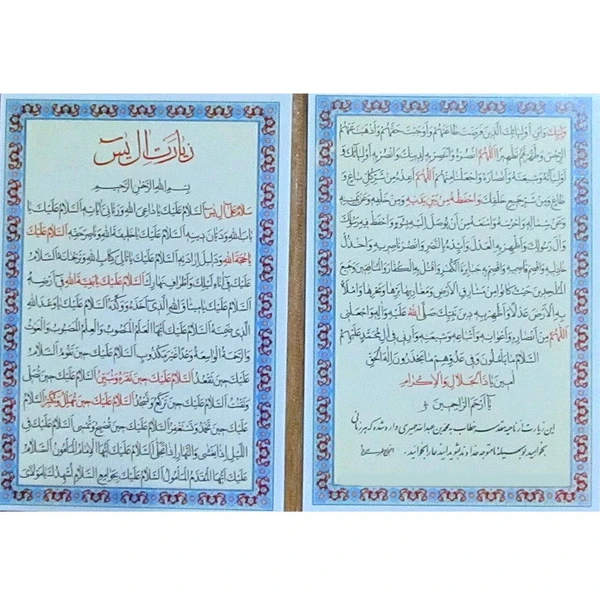 زیارت آل یس
بِسْمِ اللهِ الرَّحْمٰنِ الرَّحیمِ
سَلامٌ عَلی آلِ یس اَلسَّلامُ عَلَیْكَ یا داعِیَ اللهِ وَ رَبّانِیَّ آیاتِهِ اَلسَّلامُ عَلَیْكَ یا
بابَ اللهِ وَ دَیّانَ دینِهِ اَلسَّلامُ عَلَیْكَ یا خَلیفَةَ اللهِ وَ ناصِرَ حَقِّهِ اَلسَّلامُ عَلَیْكَ
یا حُجَّةَ اللهِ وَ دَلیلَ اِرادَتِهِ اَلسَّلامُ عَلَیْكَ یا تالِیَ کِتابِ اللهِ وَ تَرْجُمانَهُ اَلسَّلامُ
عَلَیْكَ فی آناءِ لَیْلِكَ وَ اَطْرافِ نَهارِكَ اَلسَّلامُ عَلَیْكَ یا بَقِیَّةَ اللهِ فی اَرْضِهِ
اَلسَّلامُ عَلَیْكَ یا میثاقَ اللهِ الَّذی اَخَذَهُ وَ وَکَّدَهُ اَلسَّلامُ عَلَیْكَ یا وَعْدَ اللهِ
الَّذی ضَمِنَهُ اَلسَّلامُ عَلَیْكَ اَیُّهَا الْعَلَمُ الْمَنْصُوبُ وَ الْعِلْمُ الْمَصْبُوبُ وَ الْغَوْثُ
وَ الرَّحْمَةُ الْواسِعَةُ وَعْداً غَیْرَ مَکْذُوبٍ اَلسَّلامُ عَلَیْكَ حینَ تَقُومُ اَلسَّلامُ
عَلَیْكَ حینَ تَقْعُدُ اَلسَّلامُ عَلَیْكَ حینَ تَقْرَءُ وَ تُبَیِّنُ اَلسَّلامُ عَلَیْكَ حینَ تُصَلّی
وَ تَقْنُتُ اَلسَّلامُ عَلَیْكَ حینَ تَرْکَعُ وَ تَسْجُدُ اَلسَّلامُ عَلَیْكَ حینَ تُهَلِّلُ وَ تُکَبِّرُ اَلسَّلامُ
عَلَیْكَ حینَ تَحْمَدُ وَ تَسْتَغْفِرُ اَلسَّلامُ عَلَیْكَ حینَ تُصْبِحُ وَ تُمْسی اَلسَّلامُ عَلَیْكَ فِی
اللَّیْلِ اِذا یَغْشی وَ النَّهارِ اِذا تَجَلّی اَلسَّلامُ عَلَیْكَ اَیُّهَا الْاِمامُ الْمَأْمُونُ اَلسَّلامُ
عَلَیْكَ اَیُّهَا الْمُقَدَّمُ الْمَأْمُولُ اَلسَّلامُ عَلَیْكَ بِجَوامِعِ السَّلامِ اُشْهِدُكَ یا مَوْلایَ
وَلِیِّكَ وَ ابْنِ اَوْلِیائِكَ الَّذینَ فَرَضْتَ طاعَتَهُمْ وَ اَوْجَبْتَ حَقَّهُمْ وَ اَذْهَبْتَ عَنْهُمُ
الرِّجْسَ وَ طَهَّرْتَهُمْ تَطْهیراً اَللّهُمَّ انْصُرْهُ وَ انْتَصِرْ بِهِ لِدینِكَ وَ انْصُرْ بِهِ اَوْلِیائَكَ وَ
اَوْلِیائَهُ وَ شیعَتَهُ وَ اَنْصارَهُ وَ اجْعَلْنا مِنْهُمْ اَللّهُمَّ اَعِذْهُ مِنْ شَرِّ کُلِّ باغٍ وَ
طاغٍ وَ مِنْ شَرِّ جَمیعِ خَلْقِكَ وَ احْفَظْهُ مِنْ بَیْنِ یَدَیْهِ وَ مِنْ خَلْفِهِ وَ عَنْ یَمینِهِ
وَ عَنْ شِمالِهِ وَ احْرُسْهُ وَ امْنَعْهُ مِنْ اَنْ یُوصَلَ اِلَیْهِ بِسُوءٍ وَ احْفَظْ فیهِ رَسُولَكَ
وَ آلَ رَسُولِكَ وَ اَظْهِرْ بِهِ الْعَدْلَ وَ اَیِّدْهُ بِالنَّصْرِ وَ انْصُرْ ناصِریهِ وَ اخْذُلْ
خاذِلیهِ وَ اقْصِمْ قاصِمیهِ وَ اقْصِمْ بِهِ جَبابِرَةَ الْکُفْرِ وَ اقْتُلْ بِهِ الْکُفّارَ وَ الْمُنافِقینَ وَ جَمیعَ
الْمُلْحِدینَ حَیْثُ کانُوا مِنْ مَشارِقِ الْاَرْضِ وَ مَغارِبِها بَرِّها وَ بَحْرِها وَ امْلَأْ
بِهِ الْاَرْضَ عَدْلاً وَ اَظْهِرْ بِهِ دینَ نَبِیِّكَ صَلَّی اللهُ عَلَیْهِ وَ آلِهِ وَ اجْعَلْنِی
اَللّهُمَّ مِنْ اَنْصارِهِ وَ اَعْوانِهِ وَ اَتْباعِهِ وَ شیعَتِهِ وَ اَرِنی فی آلِ مُحَمَّدٍ عَلَیْهِمُ
السَّلامُ ما یَأْمُلُونَ وَ فی عَدُوِّهِمْ ما یَحْذَرُونَ اِلهَ الْحَقِّ
آمینَ یا ذَا الْجَلالِ وَ الْاِکْرامِ
یا اَرْحَمَ الرّاحِمینَ
این زیارت از ناحیه مقدسه خطاب به محمد بن عبدالله حمیری وارد شده که هر زمانی
بخواهید بوسیله ما متوجه خدا و ما شوید اینطور بخوانید.